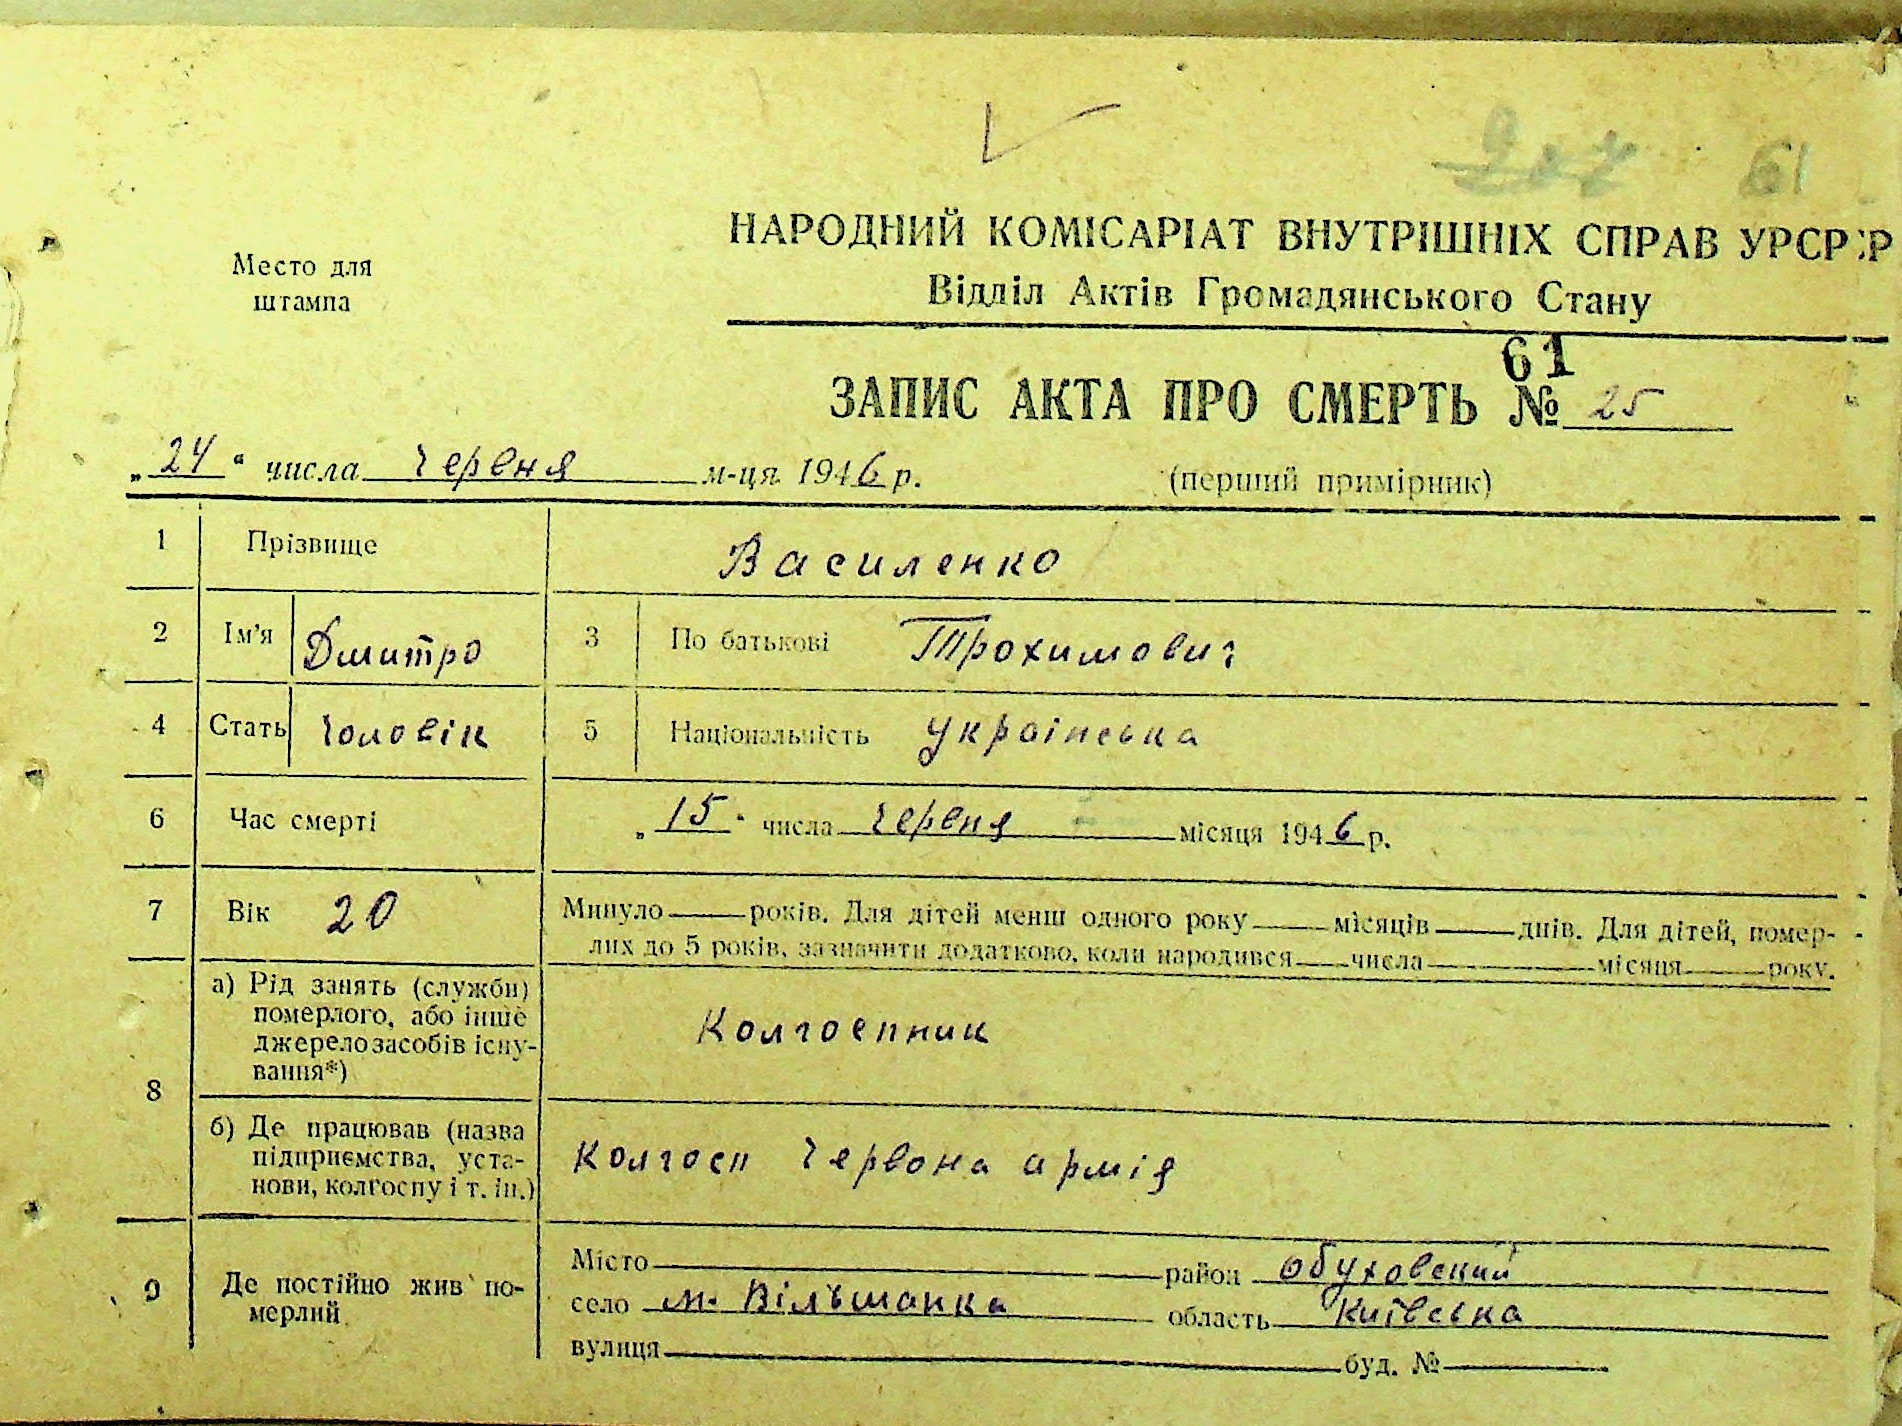 61
НАРОДНИЙ КОМІСАРІАТ ВНУТРІШНІХ СПРАВ УРСР
Відділ Актів Громадянського Стану
Место для
штампа
61
ЗАПИС АКТА ПРО СМЕРТЬ № 25
„24“ числа червня м-ця 1946 р.
(перший примірник)
1 Прізвище Василенко
2 Ім'я Дмитро 3 По батькові Трохимович
4 Стать чоловік 5 Національність українська
6 Час смерті „15“ числа червня місяця 1946 р.
7 Вік 20 Минуло років. Для дітей менш одного року місяців днів. Для дітей, помер-
лих до 5 років, зазначити додатково, коли народився числа місяця року.
8 а) Рід занять (служби)
померлого, або інше
джерело засобів існу-
вання*)
Колгоспник
б) Де працював (назва
підприємства, уста-
нови, колгоспу і т. ін.)
Колгосп Червона армія
9 Де постійно жив по-
мерлий
Місто район обуховский
село м. Вільшанка область Київська
вулиця буд. №